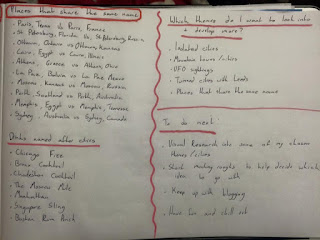 Places that share the same name
- Paris, Texas Vs Paris, France
- St Petersburg, Florida Vs. St Petersburg, Russia
- Ottawa, Ontario Vs Ottawa, Kansas
- Cairo, Egypt Vs Cairo, Illinois
- Athens, Greece Vs Athens, Ohio
- La Paz, Bolivia Vs La Paz, Mexico
- Moscow, Kansas Vs Moscow, Russia
- Perth, Scotland Vs Perth, Australia
- Memphis, Egypt Vs Memphis, Tennessee
- Sydney, Australia Vs Sydney, Canada
Drinks named after cities
- Chicago Fizz
- Bronx Cocktail
- Charleston Cocktail
- The Moscow Mule
- Manhattan
- Singapore Sling
- Boston Rum Punch
Which themes do I want to look into
+ develop more?
- Isolated cities
- Mountain towns / cities
- UFO sightings
- Twinned cities with Leeds
- Places that share the same name
To do next
- Visual Research into some of my chosen
themes / cities
- Start making roughs to help decide which
idea to go with
- Keep up with blogging
- Have fun and chill out